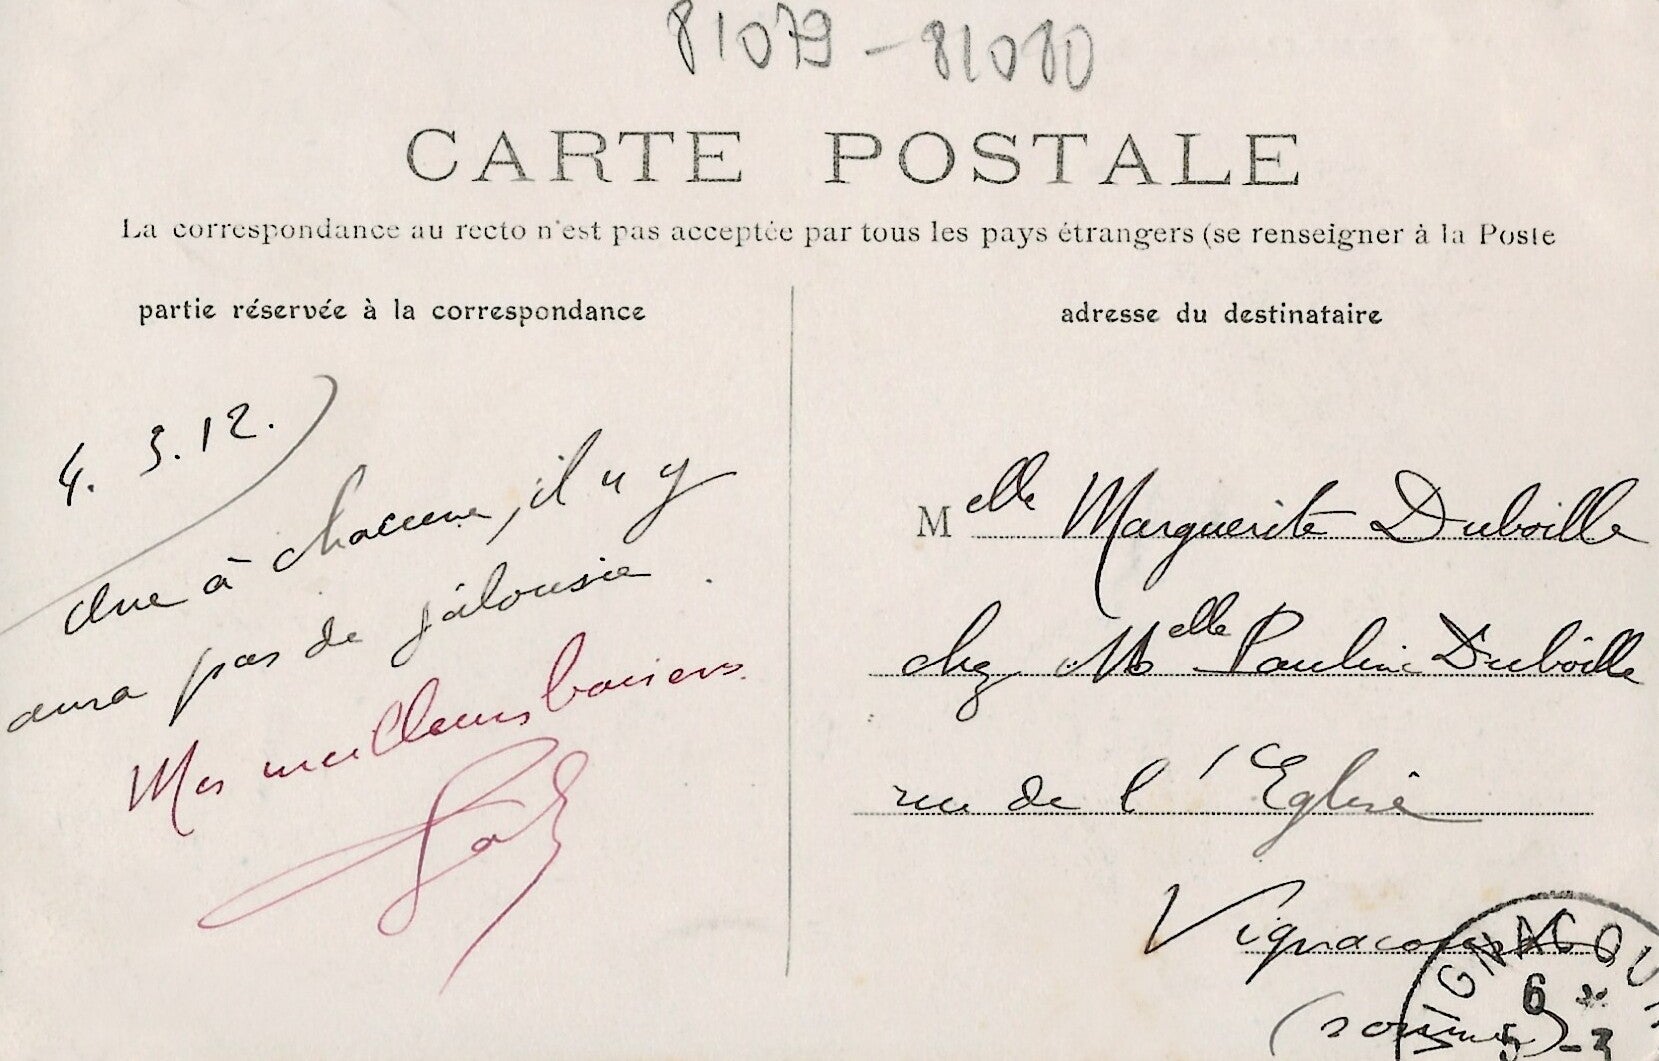 81079 - 81080
CARTE POSTALE
La correspondance au recto n'est pas acceptée par tous les pays étrangers (se renseigner à la Poste
partie réservée à la correspondance
adresse du destinataire
4. 3. 12.
Une à chacune, il n'y
aura pas de jalousie.
Mes meilleurs baisers.
Melle Marguerite Duboille
chez Melle Pauline Duboille
rue de l'Eglise
Vignacourt
(Somme)
VIGNACOU
6 *
5 -3